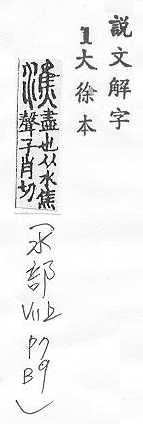 説文解字
1大徐本
潐盡也从水焦
聲子肖切
(水部
VII上
P7
B9)